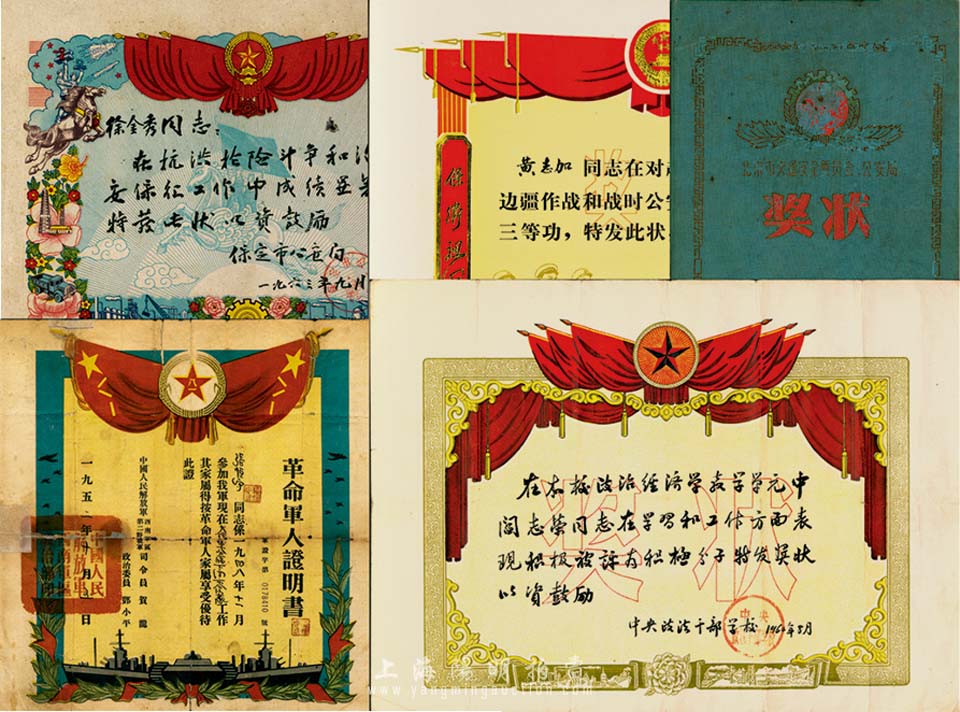 徐全秀同志：
在抗洪抢险斗争和治
安保卫工作中成绩显著
特发此状以资鼓励
保定市公安局
一九六三年九月
保卫祖
黄志加 同志在对
边疆作战和战时公安
三等功，特发此状
北京市交通安全委员会 公安局
奖状
革命軍人證明書
軍證字第 0278410 號
同志係一九四八年十一月
參加我軍現在 工作
其家屬得按革命軍人家屬享受優待
此證
中國人民解放軍 西南軍區 第二野戰軍
司令員 賀龍
政治委員 鄧小平
一九五 年 月 日
八一
奖状
在本校政治经济学教学单元中
阎志荣同志在学习和工作方面表
现积极被评为积极分子特发奖状
以资鼓励
中央政法干部学校 1964年5月
上海陽明拍賣
www.yangmingauction.com